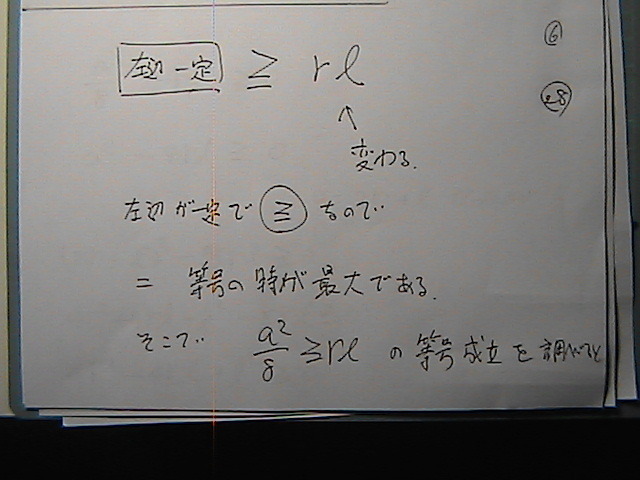 ⑥
左辺一定 ≧ rl
㉘
↑
変わる.
左辺が一定で ≧ なので
= 等号の時が最大である.
そこで a²/8 ≧ rl の等号成立を調べると